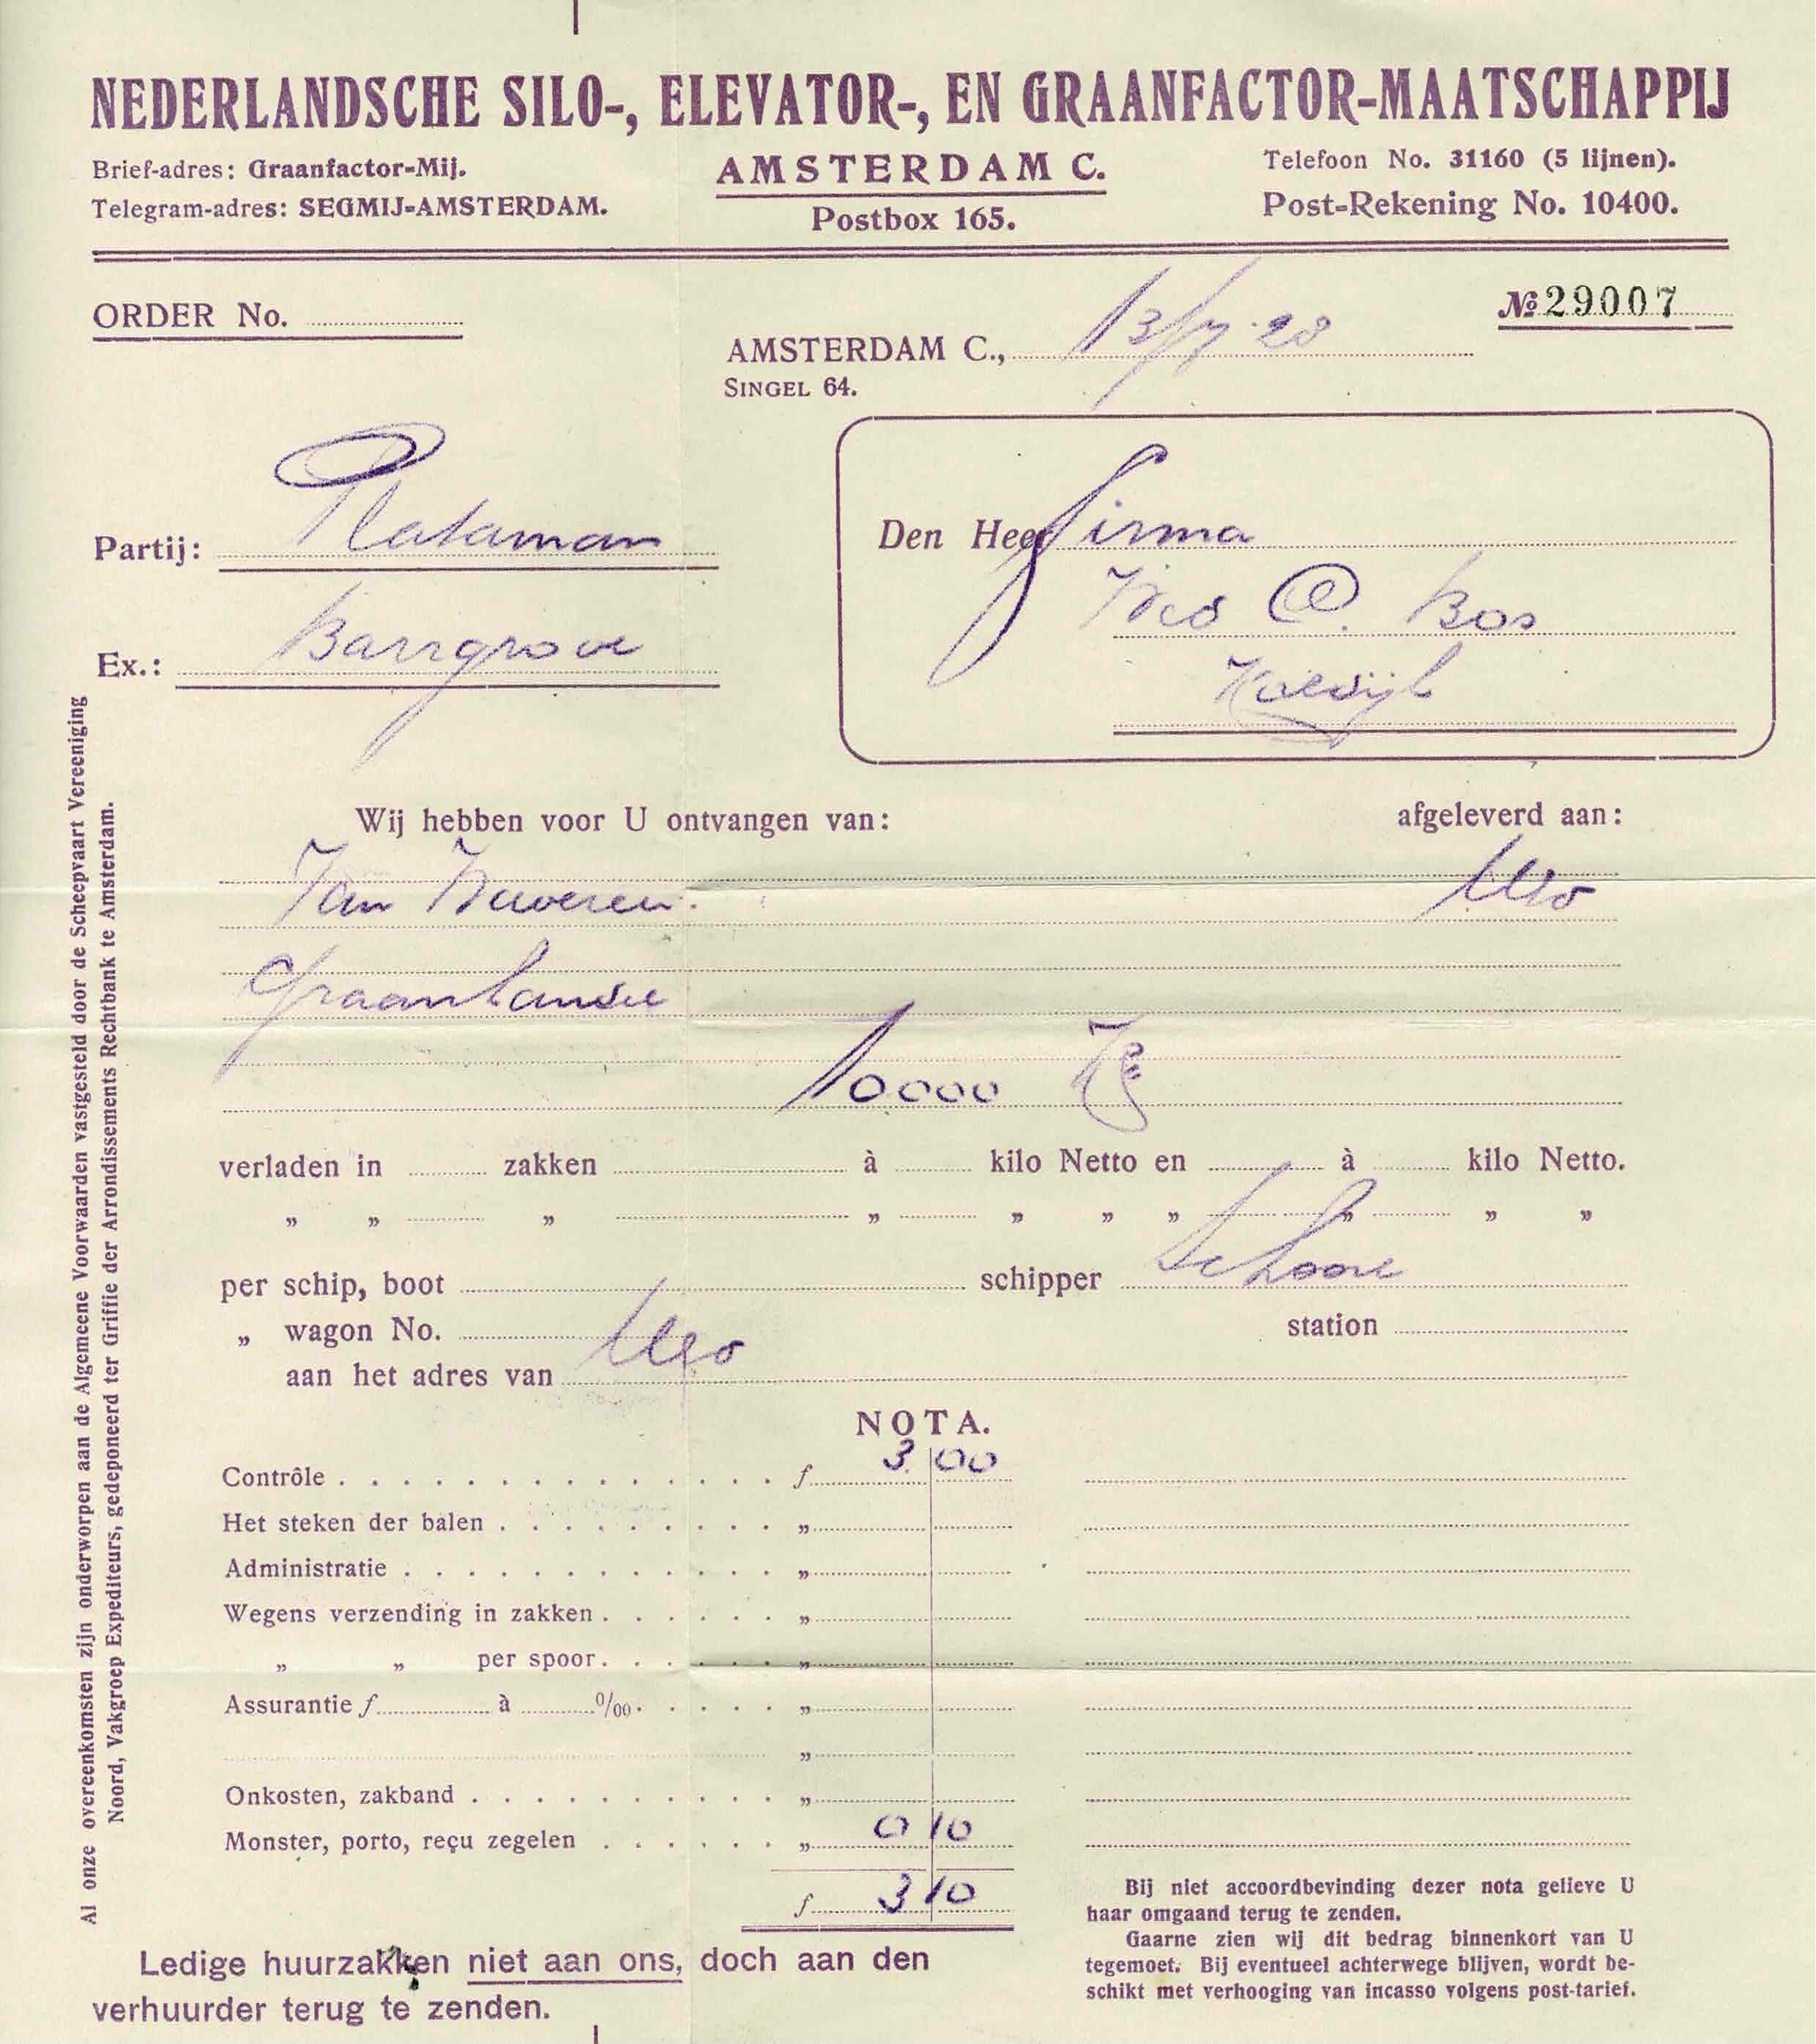 NEDERLANDSCHE SILO-, ELEVATOR-, EN GRAANFACTOR-MAATSCHAPPIJ
Brief-adres: Graanfactor-Mij.
Telegram-adres: SEGMIJ-AMSTERDAM.
AMSTERDAM C.
Postbox 165.
Telefoon No. 31160 (5 lijnen).
Post-Rekening No. 10400.
ORDER No.
№ 29007
AMSTERDAM C., 13/7-28
SINGEL 64.
Partij: Plataman
Ex.: Barrgrove
Den Heer Firma
Wed C. Bos
Wij hebben voor U ontvangen van:
afgeleverd aan:
Van
Uso
10000 Kg
verladen in zakken à kilo Netto en à kilo Netto.
„ „ „ „ „ „ „ „ „ „
per schip, boot schipper Schoone
„ wagon No. station
aan het adres van Uso
NOTA.
Contrôle f 3.00
Het steken der balen „
Administratie „
Wegens verzending in zakken „
„ „ per spoor „
Assurantie f à ‰ „
„
Onkosten, zakband „
Monster, porto, reçu zegelen „ 0 10
f 3 10
Bij niet accoordbevinding dezer nota gelieve U
haar omgaand terug te zenden.
Gaarne zien wij dit bedrag binnenkort van U
tegemoet. Bij eventueel achterwege blijven, wordt be-
schikt met verhooging van incasso volgens post-tarief.
Ledige huurzakken niet aan ons, doch aan den
verhuurder terug te zenden.
Al onze overeenkomsten zijn onderworpen aan de Algemeene Voorwaarden vastgesteld door de Scheepvaart Vereeniging
Noord, Vakgroep Expediteurs, gedeponeerd ter Griffie der Arrondissements Rechtbank te Amsterdam.